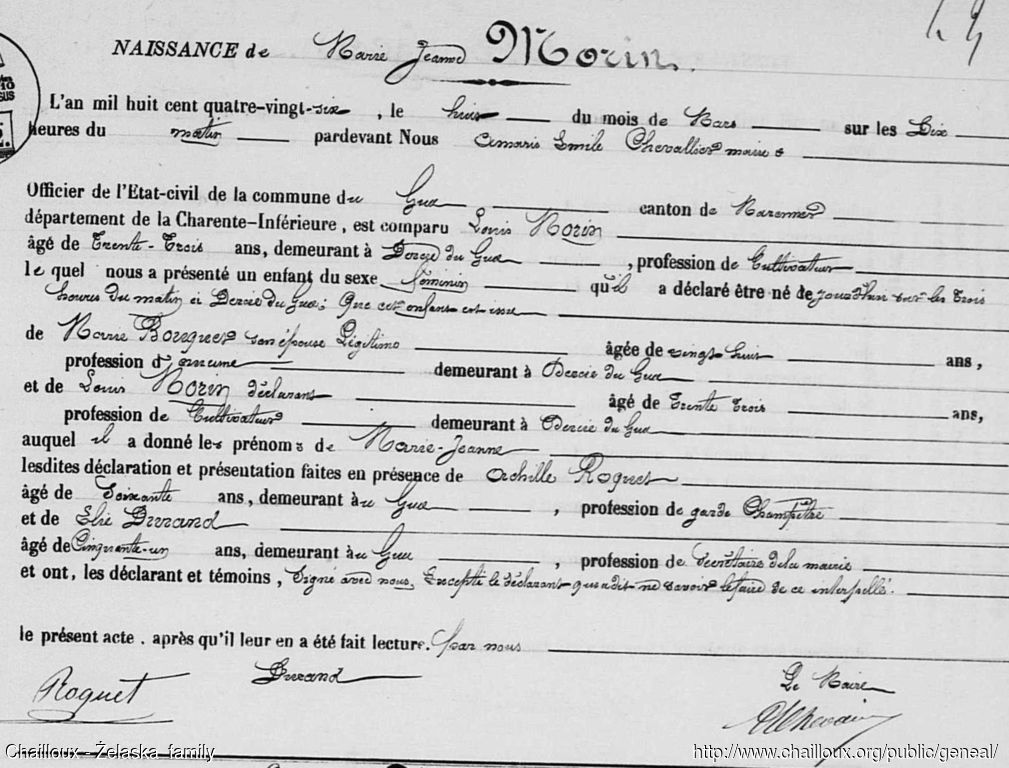 NAISSANCE de Marie Jeanne Morin.
L'an mil huit cent quatre-vingt-six, le huit du mois de Mars sur les Dix
heures du matin pardevant Nous Amaris Emile Chevallier maire
Officier de l'Etat-civil de la commune du Gua canton de Marennes
département de la Charente-Inférieure, est comparu Louis Morin
âgé de Trente-Trois ans, demeurant à Dercie du Gua, profession de Cultivateur
le quel nous a présenté un enfant du sexe féminin qu'il a déclaré être né de jourd'hui sur les Trois
heures du matin à Dercie du Gua; Que cet enfant est issu
de Marie Bouquet son épouse Légitime âgée de vingt huit ans,
profession d'aucune demeurant à Dercie du Gua
et de Louis Morin déclarant âgé de Trente Trois ans,
profession de Cultivateur demeurant à Dercie du Gua
auquel il a donné les prénoms de Marie-Jeanne
lesdites déclaration et présentation faites en présence de Achille Roquet
âgé de Soixante ans, demeurant au Gua, profession de garde Champêtre
et de Elie Durand
âgé de Cinquante-un ans, demeurant au Gua, profession de Secrétaire de la mairie
et ont, les déclarant et témoins, Signé avec nous, Excepté le déclarant qui a dit ne savoir le faire de ce interpellé.
le présent acte. après qu'il leur en a été fait lecture. par nous
Roquet Durand Le Maire
Chailloux - Želaska family http://www.chailloux.org/public/geneal/